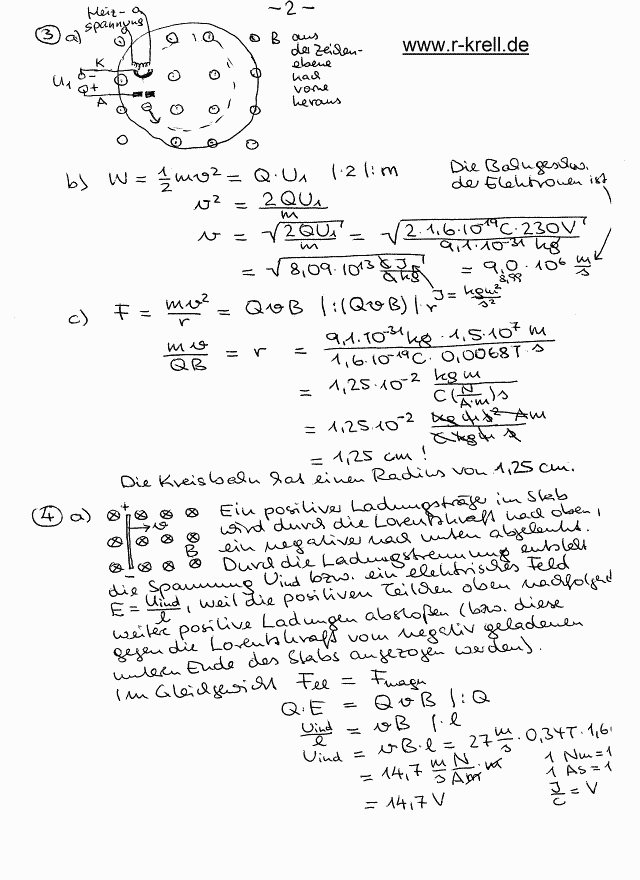 – 2 –
Heiz-
spannung
③ a)
B aus
der Zeichen-
ebene
nach
vorne
heraus
www.r-krell.de
K
U₁
A
b) W = ½mv² = Q·U₁ |·2 |:m
Die Bahngeschw.
der Elektronen ist
v² = 2QU₁/m
v = √(2QU₁/m) = √(2·1,6·10¹⁹C·230V / 9,1·10⁻³¹ kg)
= √(8,09·10¹³ C J/C kg) = 9,0·10⁶ m/s
8,99
J = kgm²/s²
c) F = mv²/r = QvB |:(QvB) |·r
mv/QB = r = 9,1·10⁻³¹kg·1,5·10⁷ m / 1,6·10⁻¹⁹C·0,0068T·s
= 1,25·10⁻² kg m / C(N/A·m)s
= 1,25·10⁻² kg m s² A m / C kg m s
= 1,25 cm !
Die Kreisbahn hat einen Radius von 1,25 cm.
④ a)
+
v
B
–
Ein positiver Ladungsträger im Stab
wird durch die Lorentzkraft nach oben,
ein negativer nach unten abgelenkt.
Durch die Ladungstrennung entsteht
die Spannung Uind bzw. ein elektrisches Feld
E = Uind/l, weil die positiven Teilchen oben nachfolgend
weitere positive Ladungen abstoßen (bzw. diese
gegen die Lorentzkraft vom negativ geladenen
unteren Ende des Stabs angezogen werden).
Im Gleichgewicht Fel = Fmagn
Q·E = QvB |:Q
Uind/l = vB |·l
Uind = vB·l = 27 m/s · 0,34T·1,6
= 14,7 m/s N/Am · m
1 Nm=1
1 As=1
= 14,7 V
J/C = V